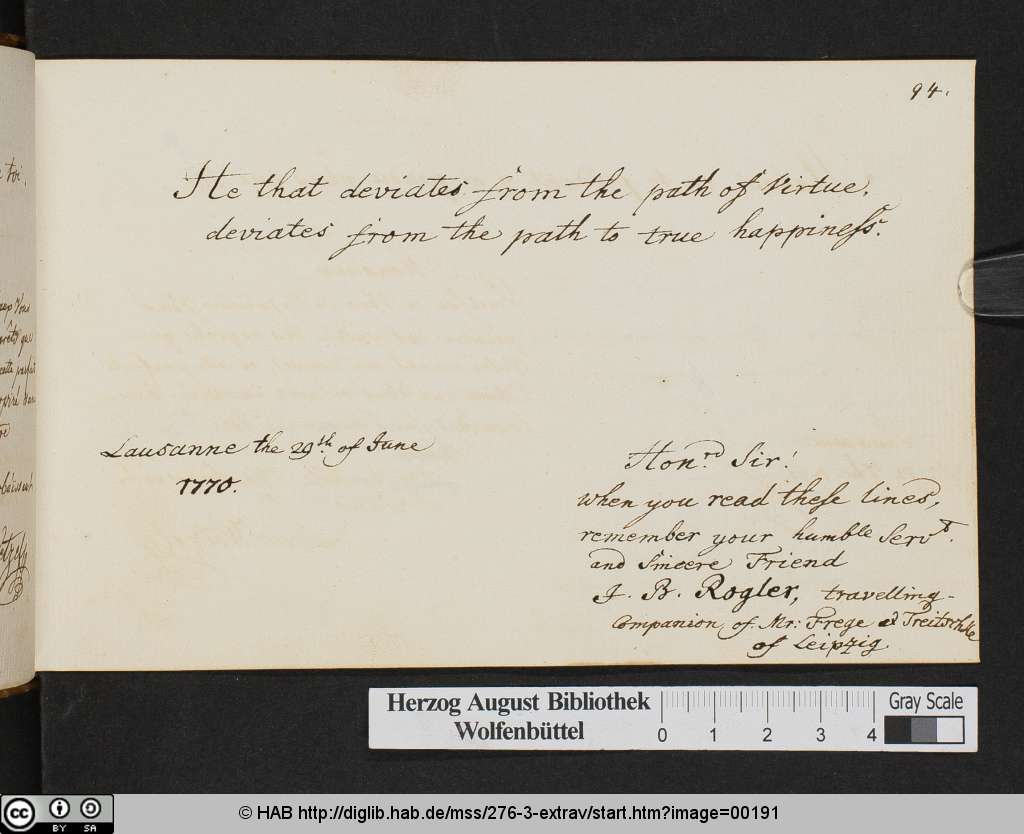 94.
He that deviates from the path of Virtue,
deviates from the path to true happineſs.
Lausanne the 29th of June
1770.
Hon.rd Sir!
when you read theſe lines,
remember your humble Servt.
and Sincere Friend
J. B. Rogler, travelling-
Companion of Mr: Frege et Treitschke
of Leipzig
Herzog August Bibliothek
Wolfenbüttel
0 1 2 3 4
Gray Scale
cc BY SA
© HAB http://diglib.hab.de/mss/276-3-extrav/start.htm?image=00191